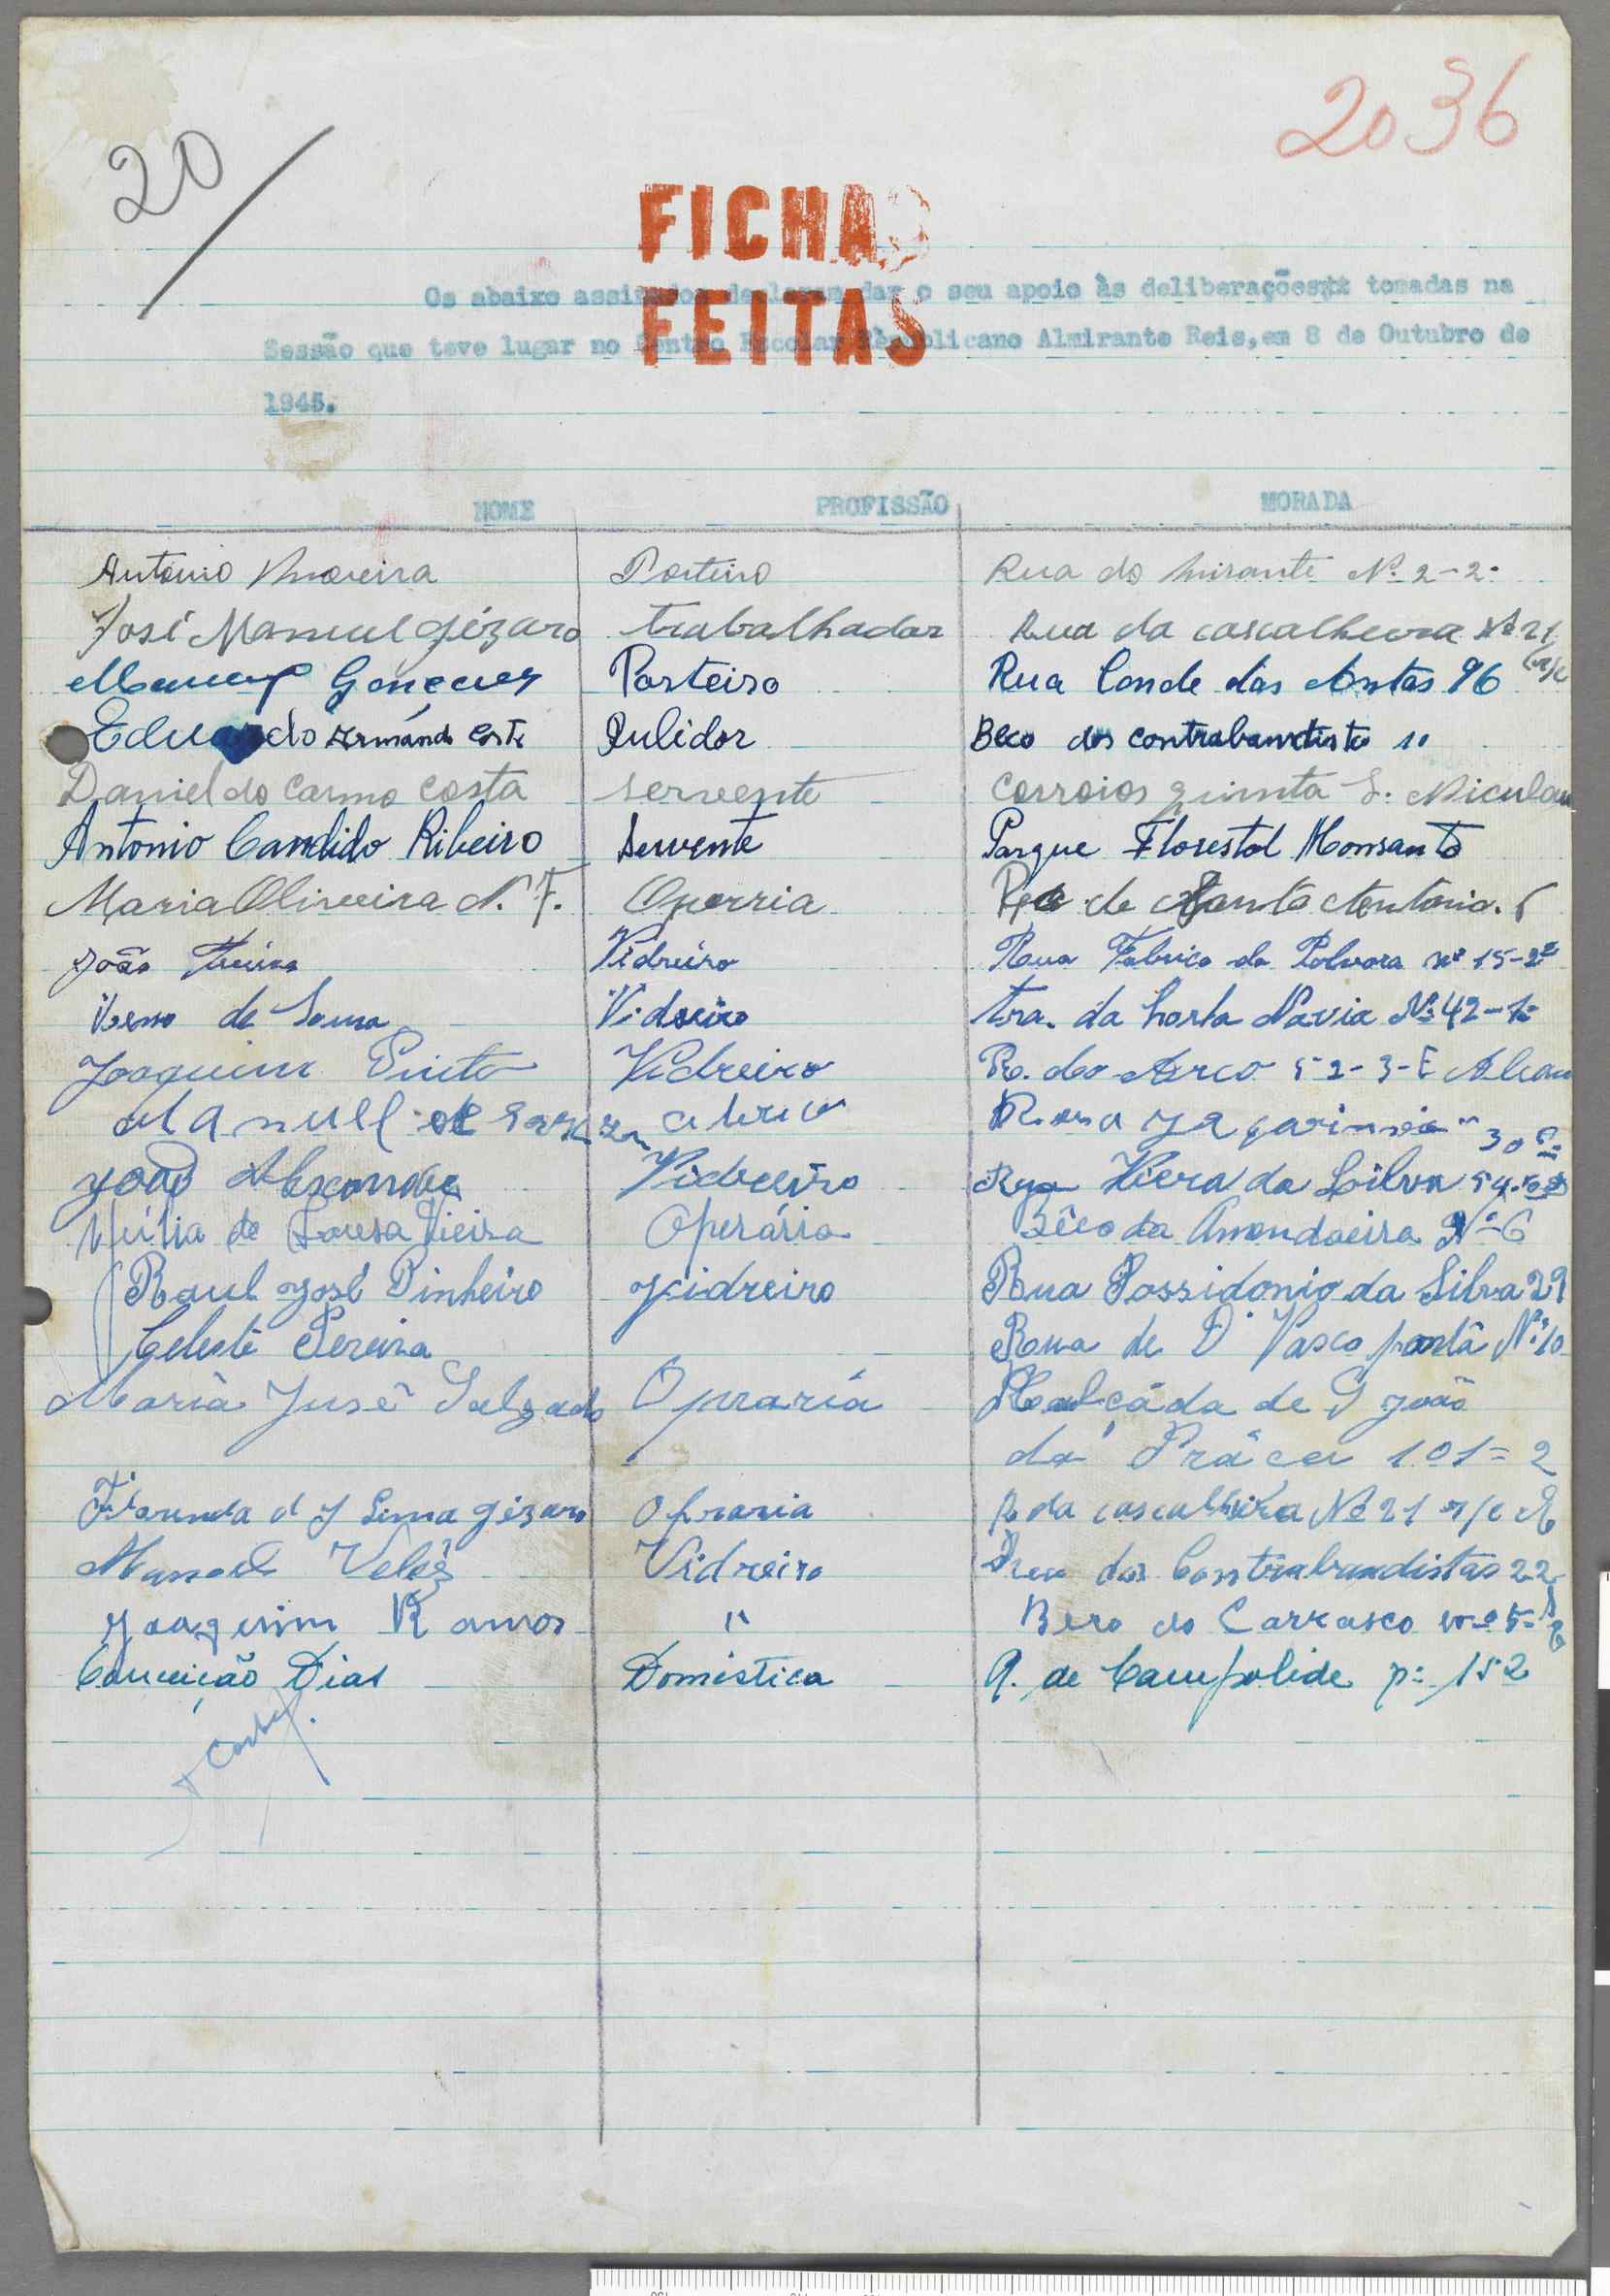 20
2036
FICHAS
FEITAS
Os abaixo assinados declaram dar o seu apoio às deliberações tomadas na
Sessão que teve lugar no Centro Escolar Rèpublicano Almirante Reis, em 8 de Outubro de
1945.
NOME PROFISSÃO MORADA
António Moreira Porteiro Rua do Mirante Nº 2-2º
José Manuel Gézaro trabalhador Rua da cascalheira Nº 21 r/c
Porteiro Rua Conde das Antas 96
Eduardo Armándo Costa Pulidor Beco dos contrabandista 10
Daniel do Carmo Costa servente Corroios quinta S. Niculau
Antonio Candido Ribeiro Servente Parque Florestal Monsanto
Maria Oliveira N. F. Operria de Santo Antonio. 6
João Vidreiro Rua Fabrica da Polvora nº 15-2º
de Sousa Vidreiro Tra. da horta Navia Nº 42-1º
Joaquim Pinto Vidreiro R. do Arco 52-3-E Alcan
Manuel de
João Alexandre Vidreiro Rua Viera da Silva 54
de Sousa Vieira Operária Bêco da Amendoeira Nº 6
Raul José Pinheiro Vidreiro Rua Possidonio da Silva 29
Celeste Pereira Rua de D Vasco Nº 10
Maria Jusé Salgado Opraria Calçáda de S João
da Práca 101=2
d J Lima Gézaro Opraria R da cascalheira Nº 21 r/c E
Manoel Velêz Vidreiro Beco dos Contrabandistas 22
Joaquim Ramos " Beco do Carrasco nº 5
Conceição Dias Doméstica R. de Campolide pº 152